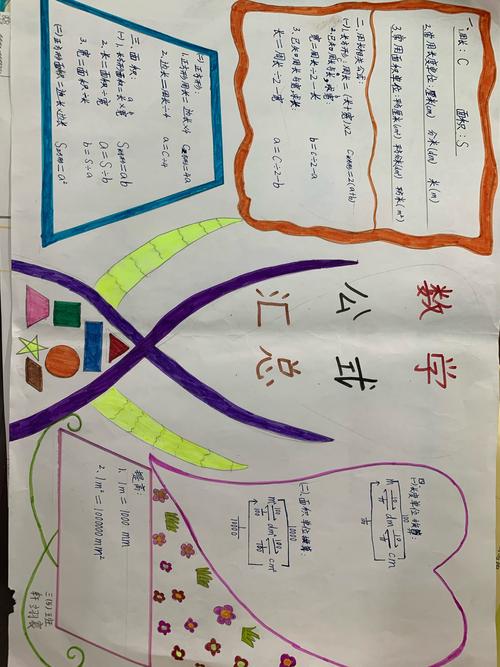 数学
公式
汇总
一、周长:C 面积:S
2.常用长度单位:厘米(cm) 分米(dm) 米(m)
3.常用面积单位:平方厘米(cm²) 平方分米(dm²) 平方米(m²)
二、周长相关公式:
(一)、长方形:周长=(长+宽)×2 C长方形=2(a+b)
2.已知周长与长,求宽:
宽=周长÷2-长 b=c÷2-a
3.已知周长与宽求长
长=周长÷2-宽 a=C÷2-b
(二)正方形:
1.正方形周长=边长×4 C正方形=4a
2.边长=周长÷4 a=C÷4
三、面积:
(一)、1.长方形面积=长×宽 S长方形=ab
2.长=面积÷宽 a=S÷b
3.宽=面积÷长 b=S÷a
(二)正方形面积=边长×边长 S正方形=a²
四、
(一)长度单位换算:
100
m 10 dm 10 cm
(二)、面积单位换算:
10000
m² 100 dm² 100 cm²
提高:
1、1m=1000 mm
2、1m²=1000000mm²
三(5)班